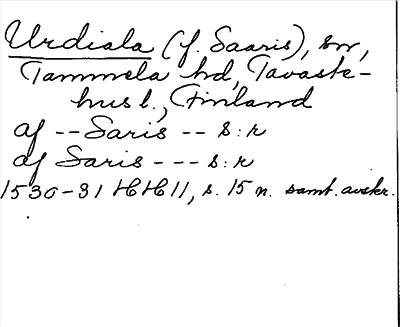 Urdiala (f. Saaris), sn,
Tammela hd, Tavaste-
hus l., Finland
af -- Saris -- s:n
af Saris --- s:n
1530-31 HH 11, s. 15 n. samt. avskr.